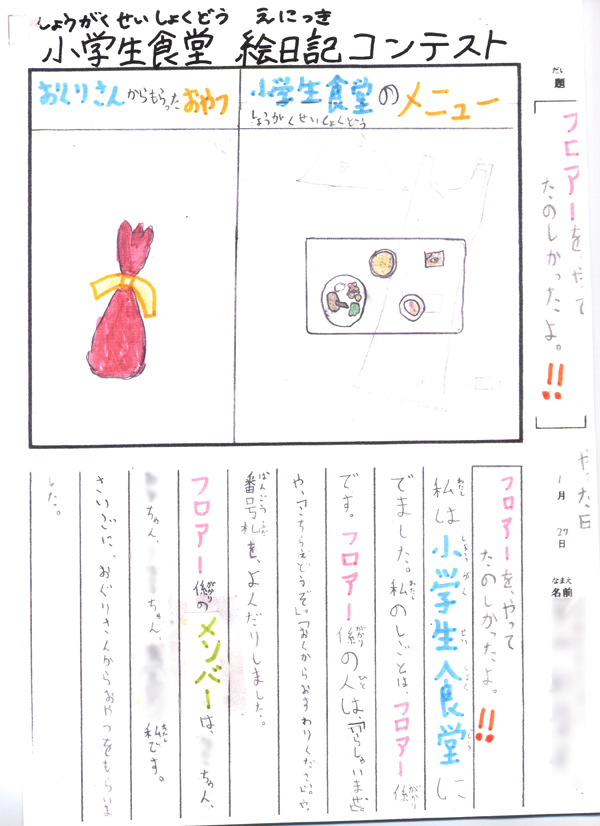 しょうがくせいしょくどう えにっき
小学生食堂 絵日記コンテスト
おぐりさんからもらったおやつ
小学生食堂のメニュー
しょうがくせいしょくどう
だい
題
フロアーをやって
たのしかったよ。!!
やった日
1月27日
なまえ
名前
フロアーを、やって
たのしかったよ。!!
私は小学生食堂に
わたし しょうがくせいしょくどう
でました。私のしごとは、フロアー係
わたし がかり
です。フロアー係の人は、「いらっしゃいませ。」
がかり ひと
や、「こちらえどうぞ。」「おくからおすわりください。」や、
番号札を、よんだりしました。
ばんごうふだ
フロアー係のメンバーは、ちゃん、
がかり
ちゃん、ちゃん、私です。
わたし
さいごに、おぐりさんからおやつをもらいま
した。